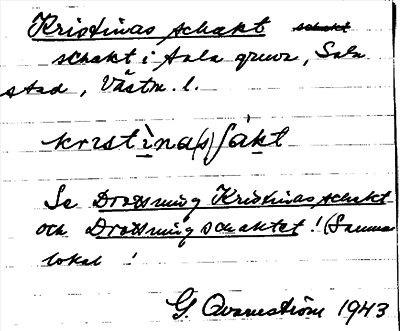 Kristinas schakt schakt
schakt i Sala gruva, Sala
stad, Västm. l.
krɪstìna(s)ʃàkt
Se Drottning Kristinas schakt
och Drottningschaktet! (Samma
lokal!
G. Qvarnström 1943